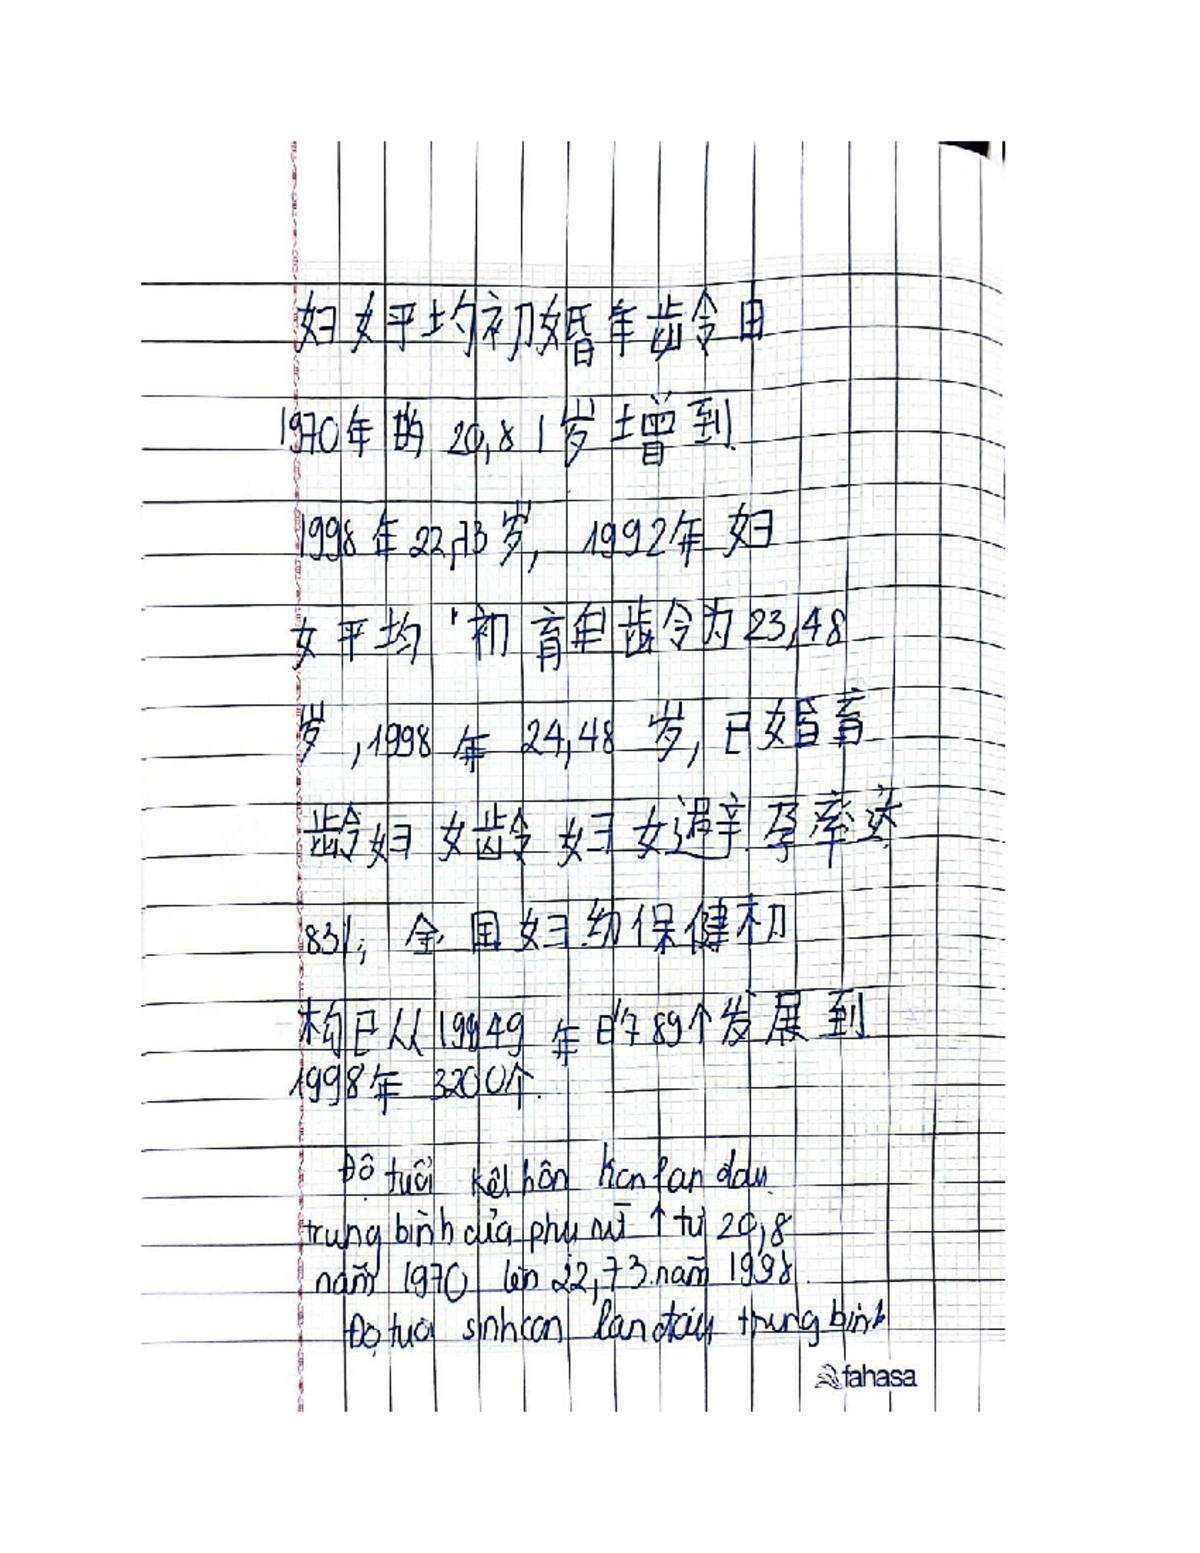 妇女平均初婚年龄由
1970年的 20,81岁增到
1998年22,73岁, 1992年 妇
女平均 初育年龄为23,48
岁,1998年 24,48 岁, 已婚育
龄妇女龄妇女避孕率达
83%; 全国妇幼保健机
构已从19949年的789个发展到
1998年 3200个.
Độ tuổi kết hôn lần đầu
trung bình của phụ nữ ↑ từ 20,8
năm 1970 lên 22,73 năm 1998
Độ tuổi sinh con lần đầu trung bình
fahasa